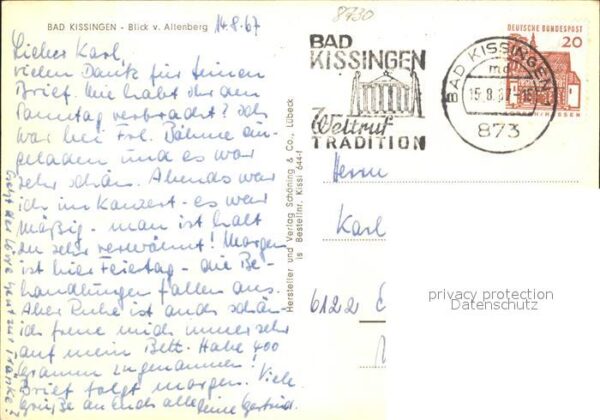 BAD KISSINGEN - Blick v. Altenberg 14.8.67
Lieber Karl,
vielen Dank für Deinen
Brief. Wie habt ihr den
Sonntag verbracht? Ich
war bei Frl. Böhme ein-
geladen und es war
sehr schön. Abends war
ich im Konzert - es war
mäßig - man ist halt
zu sehr verwöhnt! Morgen
ist hier Feiertag - die Be-
handlungen fallen aus.
Aber Ruhe ist auch schön
ich freue mich immer sehr
auf mein Bett. Habe 400
Gramm zugenommen!
Brief folgt morgen. Viele
Grüße an Euch alle Deine Gertrud.
Geht der Löwe heut zur Tränke?
Hersteller und Verlag Schöning & Co., Lübeck
is Bestellnr. Kissi 644-f
8730
BAD
KISSINGEN
Weltruf
TRADITION
BAD KISSINGEN
15.8.
873
DEUTSCHE BUNDESPOST
20
Herrn
Karl
6122
privacy protection
Datenschutz